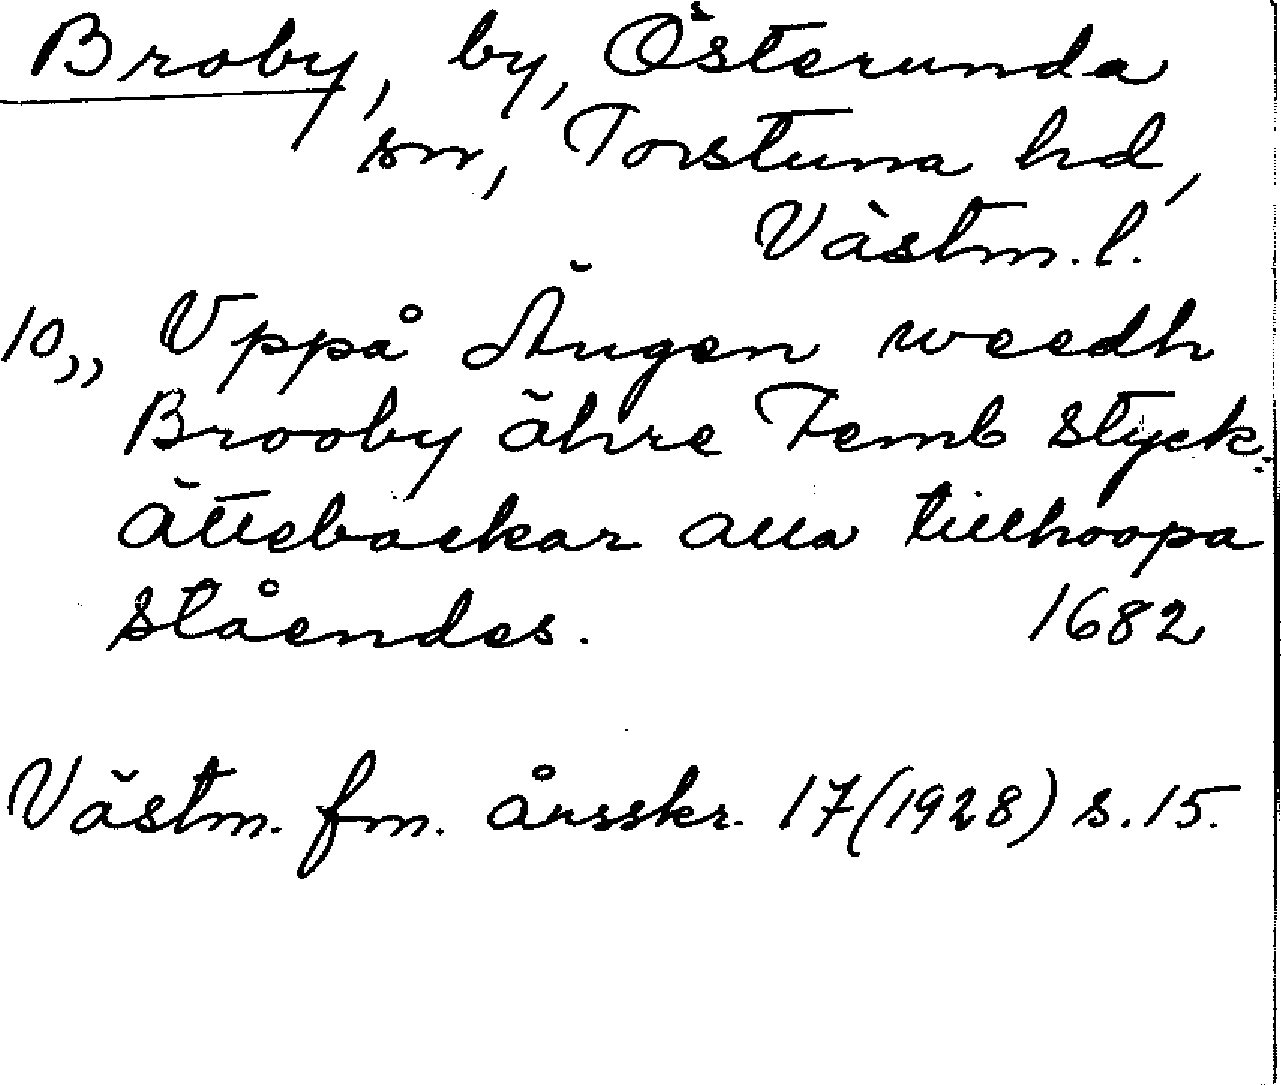 Broby, by, Österunda
sn, Torstuna hd,
Västm. l.
10,, Uppå Ängen weedh
Brooby ähre Femb styck:
ättebackar alla tillhoopa
ståendes. 1682
Västm. fm. årsskr. 17(1928) s. 15.